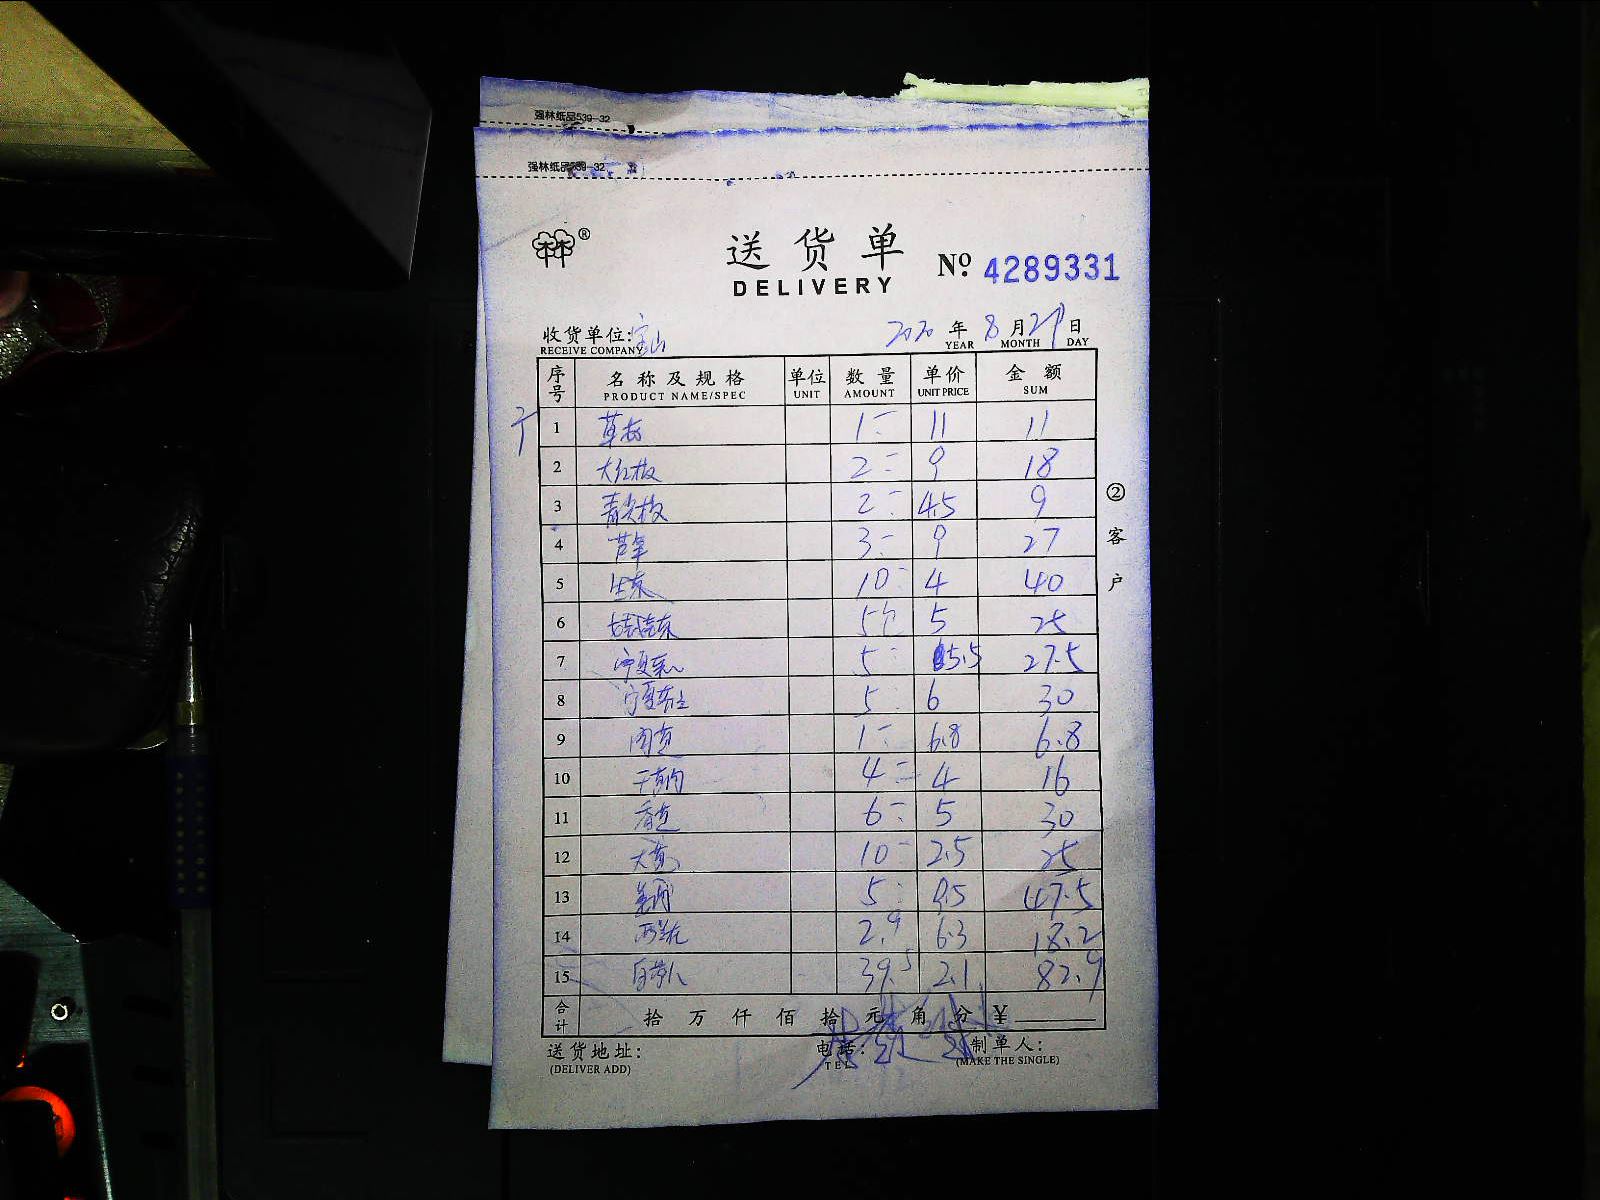 强林纸品539-32
强林纸品539-32
®
送货单
DELIVERY
№ 4289331
收货单位: 宝山
RECEIVE COMPANY
2020 年 8 月 29 日
YEAR MONTH DAY
序号 名称及规格 单位 数量 单价 金额
PRODUCT NAME/SPEC UNIT AMOUNT UNIT PRICE SUM
1 11 11
2 大红椒 2 9 18
3 青尖椒 2 4.5 9
4 3 9 27
5 生菜 10 4 40
6 5 5 25
7 宁夏菜心 5 5.5 27.5
8 5 6 30
9 1 6.8 6.8
10 4 4 16
11 6 5 30
12 10 2.5 25
13 5 9.5 47.5
14 2.9 6.3 18.2
15 39.5 2.1 82.9
合计 拾 万 仟 佰 拾 元 角 分 ¥
送货地址: 电话: 制单人:
(DELIVER ADD) TEL (MAKE THE SINGLE)
② 客户